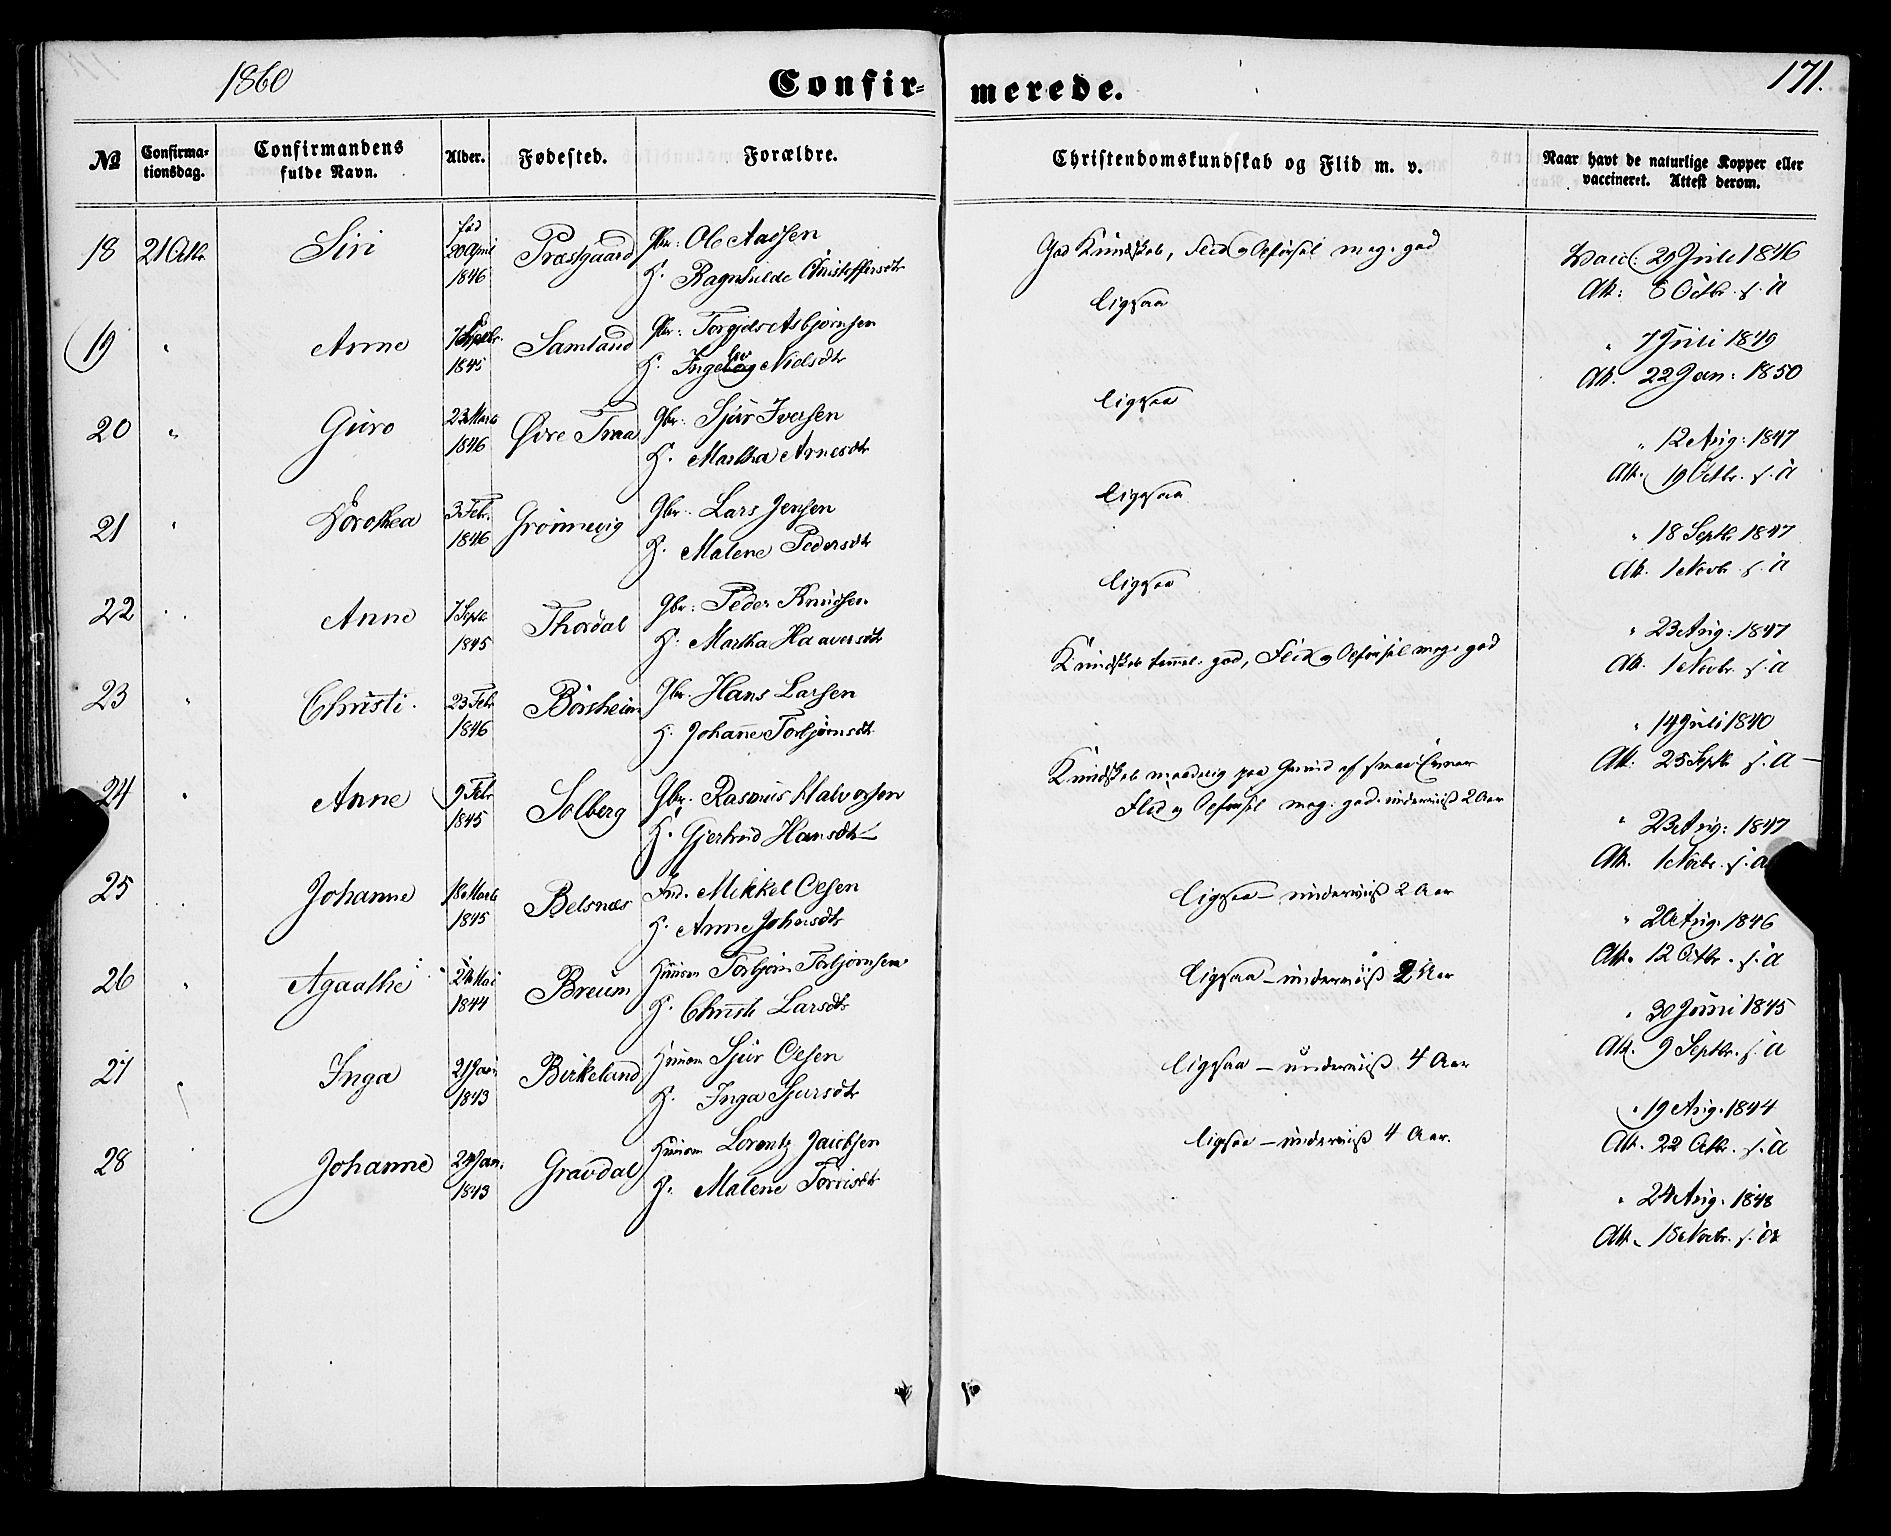 1860
Confir- merede.
171.
№ Confirma-tionsdag. Confirmandens fulde Navn. Alder. Fødested. Forældre. Christendomskundskab og Flid m. v. Naar havt de naturlige Kopper eller vaccineret. Attest derom.
18 21 Octbr. Siri fød 20 April 1846 Præstgaard Gbr: Ole Aassen
H. Ragnhilde Christoffersdtr
God Kundskab, Flid og Opførsel meg. god
Vacc: 29 Juli 1846
Att: 6 Octbr. s. a
19 " Anne 7 Septbr. 1845 Samland Gbr: Torgels Asbjørnsen
H. Ingeborg Nielsdtr
ligesaa
" 7 Juli 1849
Att. 22 Jan: 1850
20 " Guro 23 Marts 1846 Øvre Traa Gbr: Sjur Iversen
H. Martha Arnesdtr
ligesaa
" 12 Aug: 1847
Att. 19 Octbr. s. a
21 " Dorothea 3 Febr. 1846 Grønnevig Gbr. Lars Jensen
H. Malene Pedersdtr
ligesaa
" 18 Septbr. 1847
Att. 1 Novbr. s. a
22 " Anne 7 Septr 1845 Thordal Gbr: Peder Knudsen
H. Martha Haaversdtr
ligesaa
" 23 Aug: 1847
Att. 1 Novbr. s. a
23 " Christi 23 Febr 1846 Børsheim Gbr. Hans Larsen
H. Johanne Torbjørnsdtr
Kundskab temmel. god, Flid og Opførsel meg. god
" 14 Juli 1840
Att: 25 Septbr s. a
24 " Anne 9 Febr 1845 Solberg Gbr. Rasmus Halvorsen
H. Gjertrud Hansdtr
Kundskab maadelig paa Grund af svae Evner
Flid og Opførsel meg. god. underviist 2 Aar
" 23 Aug: 1847
Att. 1 Novbr. s. a
25 " Johanne 18 Marts 1845 Belsnæs Ind. Mikkel Olsen
H. Anne Johansdtr
ligesaa – underviist 2 Aar
" 20 Aug. 1846
Att. 12 Octbr. s. a
26 " Agaathe 24 Mai 1844 Breum Huusm Torbjørn Torbjørnsen
H. Christi Larsdtr
ligesaa – underviist 2 Aar
" 30 Juni 1845
Att. 9 Septbr. s. a
27 " Inga 21 Jan 1843 Birkeland Huusm Sjur Olsen
H. Inga Sjursdtr
ligesaa – underviist 4 Aar
" 19 Aug. 1844
Att. 22 Octbr. s. a
28 Johanne 24 Jan. 1843 Gravdal Huusm Lorentz Jacobsen
H. Malene Torrisdtr
ligesaa – underviist 4 Aar.
" 24 Aug. 1848
Att. 15 Novbr. s. a